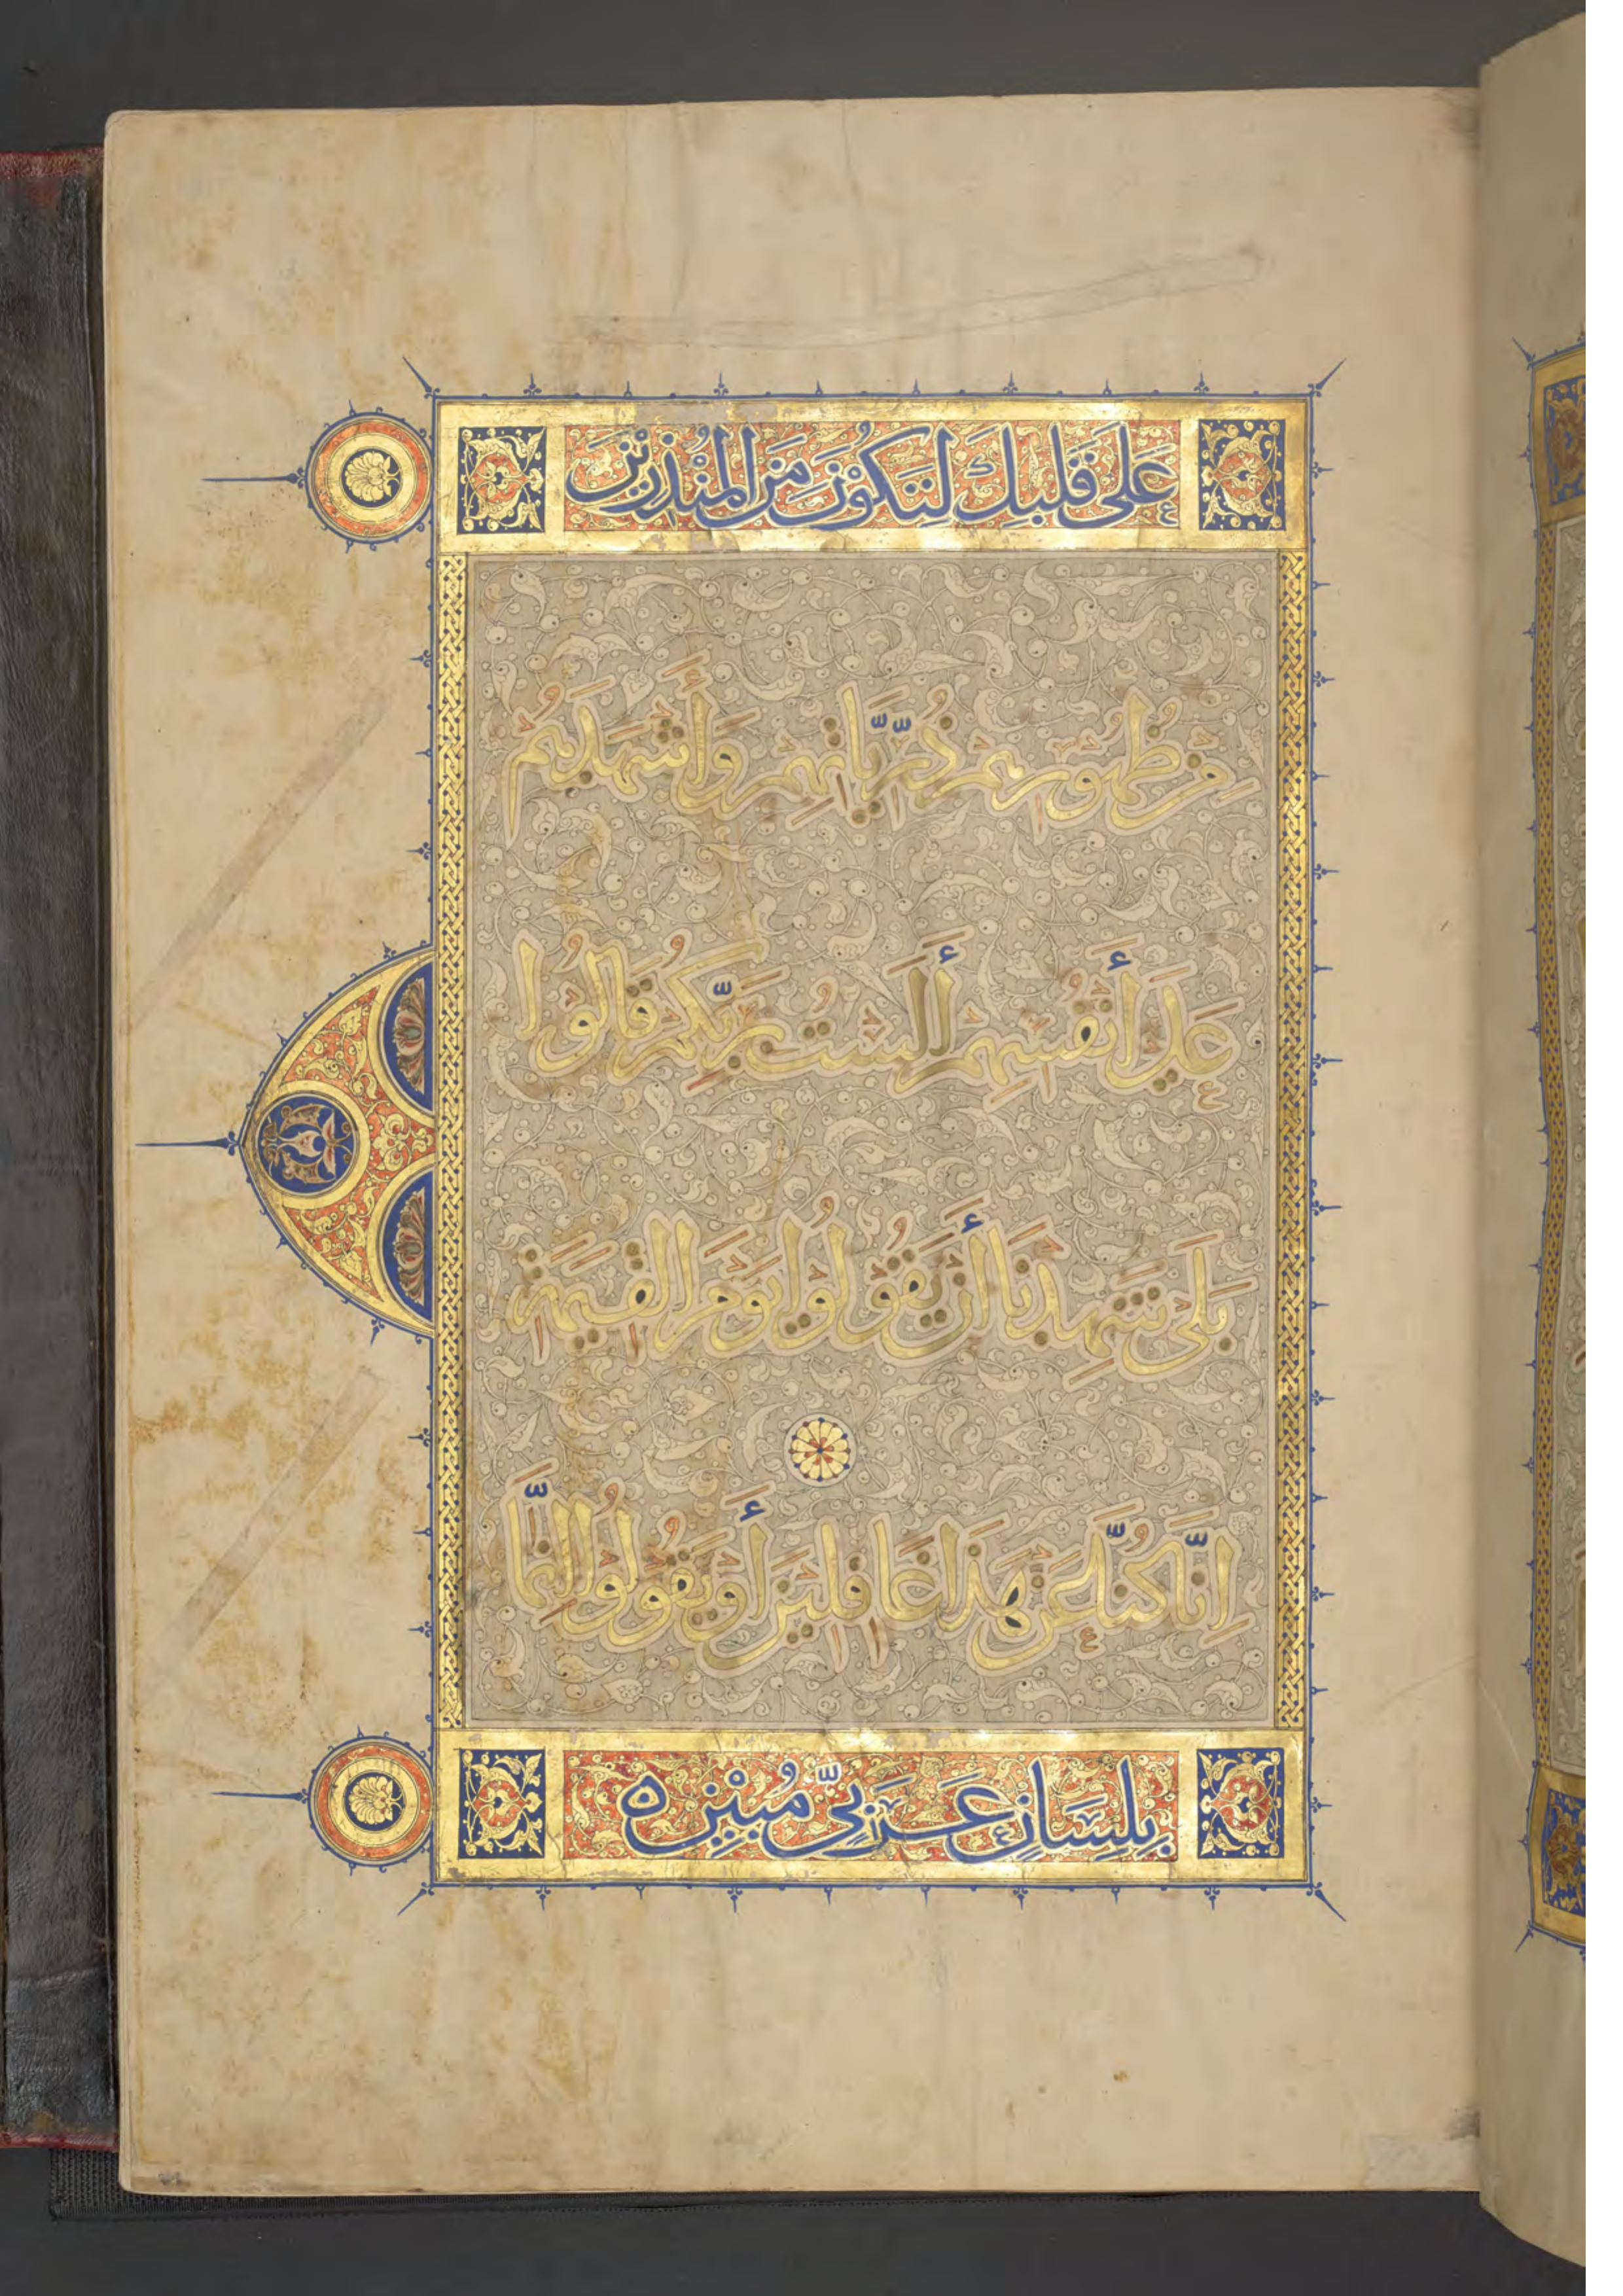 عَلَى قَلْبِكَ لِتَكُوْنَ مِنَ الْمُنْذِرِيْنَ
مِنْ ظُهُورِهِمْ ذُرِّيَّاتِهِمْ وَأَشْهَدَهُمْ
عَلَى أَنْفُسِهِمْ أَلَسْتُ بِرَبِّكُمْ قَالُوا
بَلَى شَهِدْنَا أَنْ يَقُولُوا يَوْمَ الْقِيَمَةِ
اِنَّا كُنَّا عَنْ هَذَا غَافِلِينَ أَوْ يَقُولُوا اِنَّمَا
بِلِسَانٍ عَرَبِيٍّ مُبِيْنٍ ه